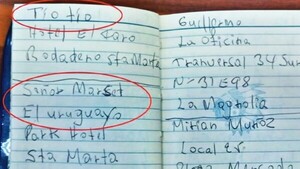 Tio tio
Hotel El Faro
Rodadero Sta Marta
Señor Marset
El uruguayo
Park Hotel
Sta Marta
Guillermo
La Oficina
Tranversal 34 Sur
Nº 31E98
La Magnolia
Mirian Muñoz
Local